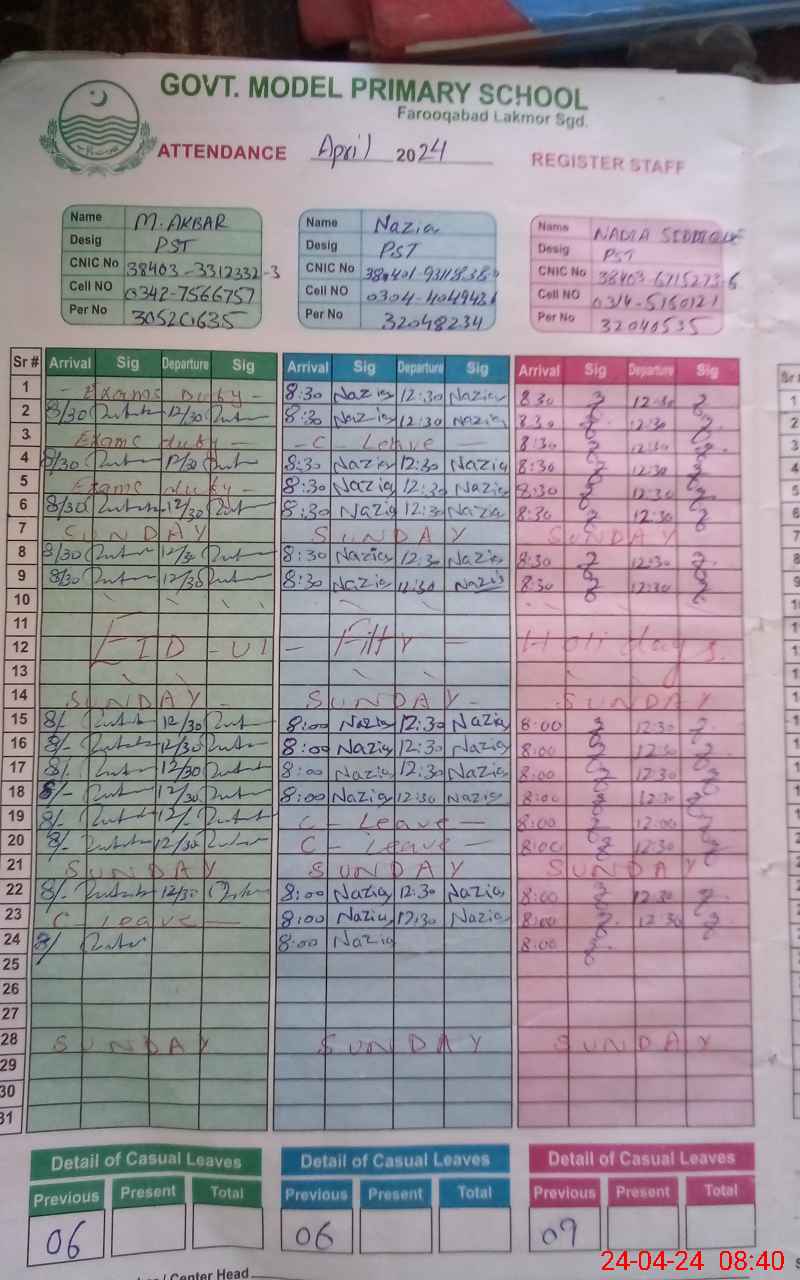 GOVT. MODEL PRIMARY SCHOOL
Farooqabad Lakmor Sgd.
ATTENDANCE April 2024 REGISTER STAFF
Name M. AKBAR Name Nazia Name NADIA
Desig PST Desig PST Desig PST
CNIC No 38403-3312332-3 CNIC No CNIC No 38403-6715273-6
Cell NO 0342-7566757 Cell NO Cell NO
Per No Per No 32048234 Per No 32040535
Sr # Arrival Sig Departure Sig Arrival Sig Departure Sig Arrival Sig Departure Sig
1 - Exams Duty - 8:30 Nazia 12:30 Nazia 8:30 12:30
2 8/30 12/30 8:30 Nazia 12:30 Nazia 8:30 12:30
3 Exams duty - - C - Leave - 8:30 12:30
4 8/30 12/30 8:30 Nazia 12:30 Nazia 8:30 12:30
5 Exams duty - 8:30 Nazia 12:30 Nazia 8:30 12:30
6 8/30 12/30 8:30 Nazia 12:30 Nazia 8:30 12:30
7 SUNDAY SUNDAY SUNDAY
8 8/30 12/30 8:30 Nazia 12:30 Nazia 8:30 12:30
9 8/30 12/30 8:30 Nazia 12:30 Nazia 8:30 12:30
10
11
12 EID - UL - Fitty - Holidays.
13
14 SUNDAY - SUNDAY - SUNDAY
15 8/- 12/30 8:00 Nazia 12:30 Nazia 8:00 12:30
16 8/- 12/30 8:00 Nazia 12:30 Nazia 8:00 12:30
17 8/- 12/30 8:00 Nazia 12:30 Nazia 8:00 12:30
18 8/- 12/30 8:00 Nazia 12:30 Nazia 8:00 12:30
19 8/- 12/- C - Leave - 8:00 12:00
20 8/- 12/30 C - Leave - 8:00 12:30
21 SUNDAY SUNDAY SUNDAY
22 8/- 12/30 8:00 Nazia 12:30 Nazia 8:00 12:30
23 C - Leave - 8:00 Nazia 12:30 Nazia 8:00 12:30
24 8/ 8:00 Nazia 8:00
25
26
27
28 SUNDAY SUNDAY SUNDAY
29
30
31
Detail of Casual Leaves Detail of Casual Leaves Detail of Casual Leaves
Previous Present Total Previous Present Total Previous Present Total
06 06 07
/Center Head
24-04-24 08:40